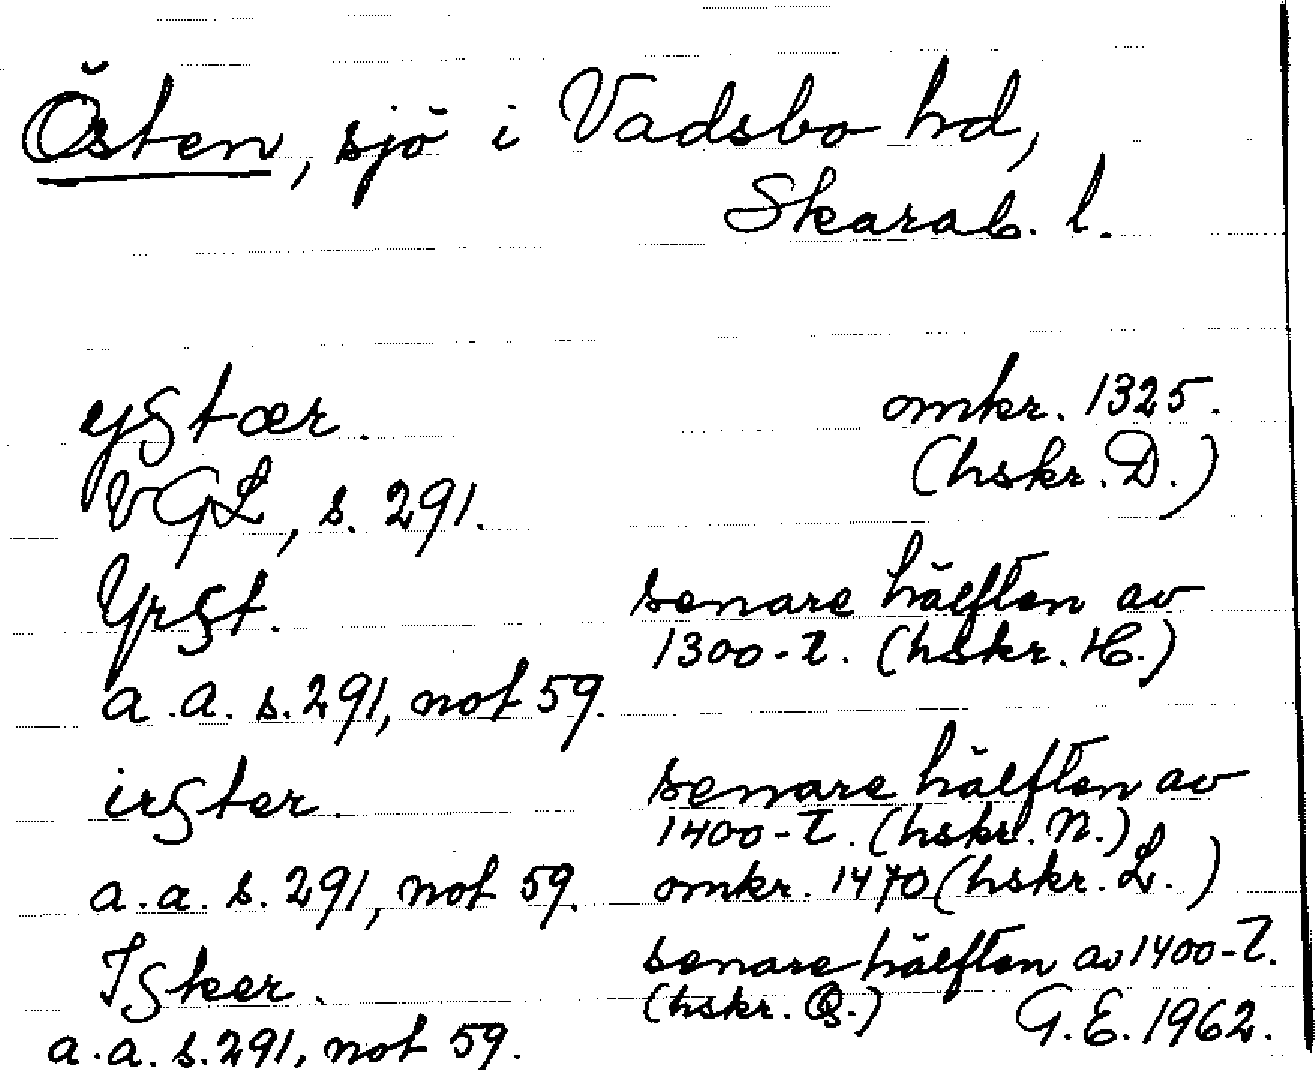 Östen, sjö i Vadsbo hd,
Skarab. l.
ystær. omkr. 1325.
VGL, s. 291. (hskr. D.)
Yrst. senare hälften av
1300-t. (hskr. H.)
a.a. s. 291, not 59.
irster. senare hälften av
1400-t. (hskr. N.)
a.a. s. 291, not 59. omkr. 1470 (hskr. L.)
Isker. senare hälften av 1400-t.
(hskr. Q.) G.E. 1962.
a.a. s. 291, not 59.